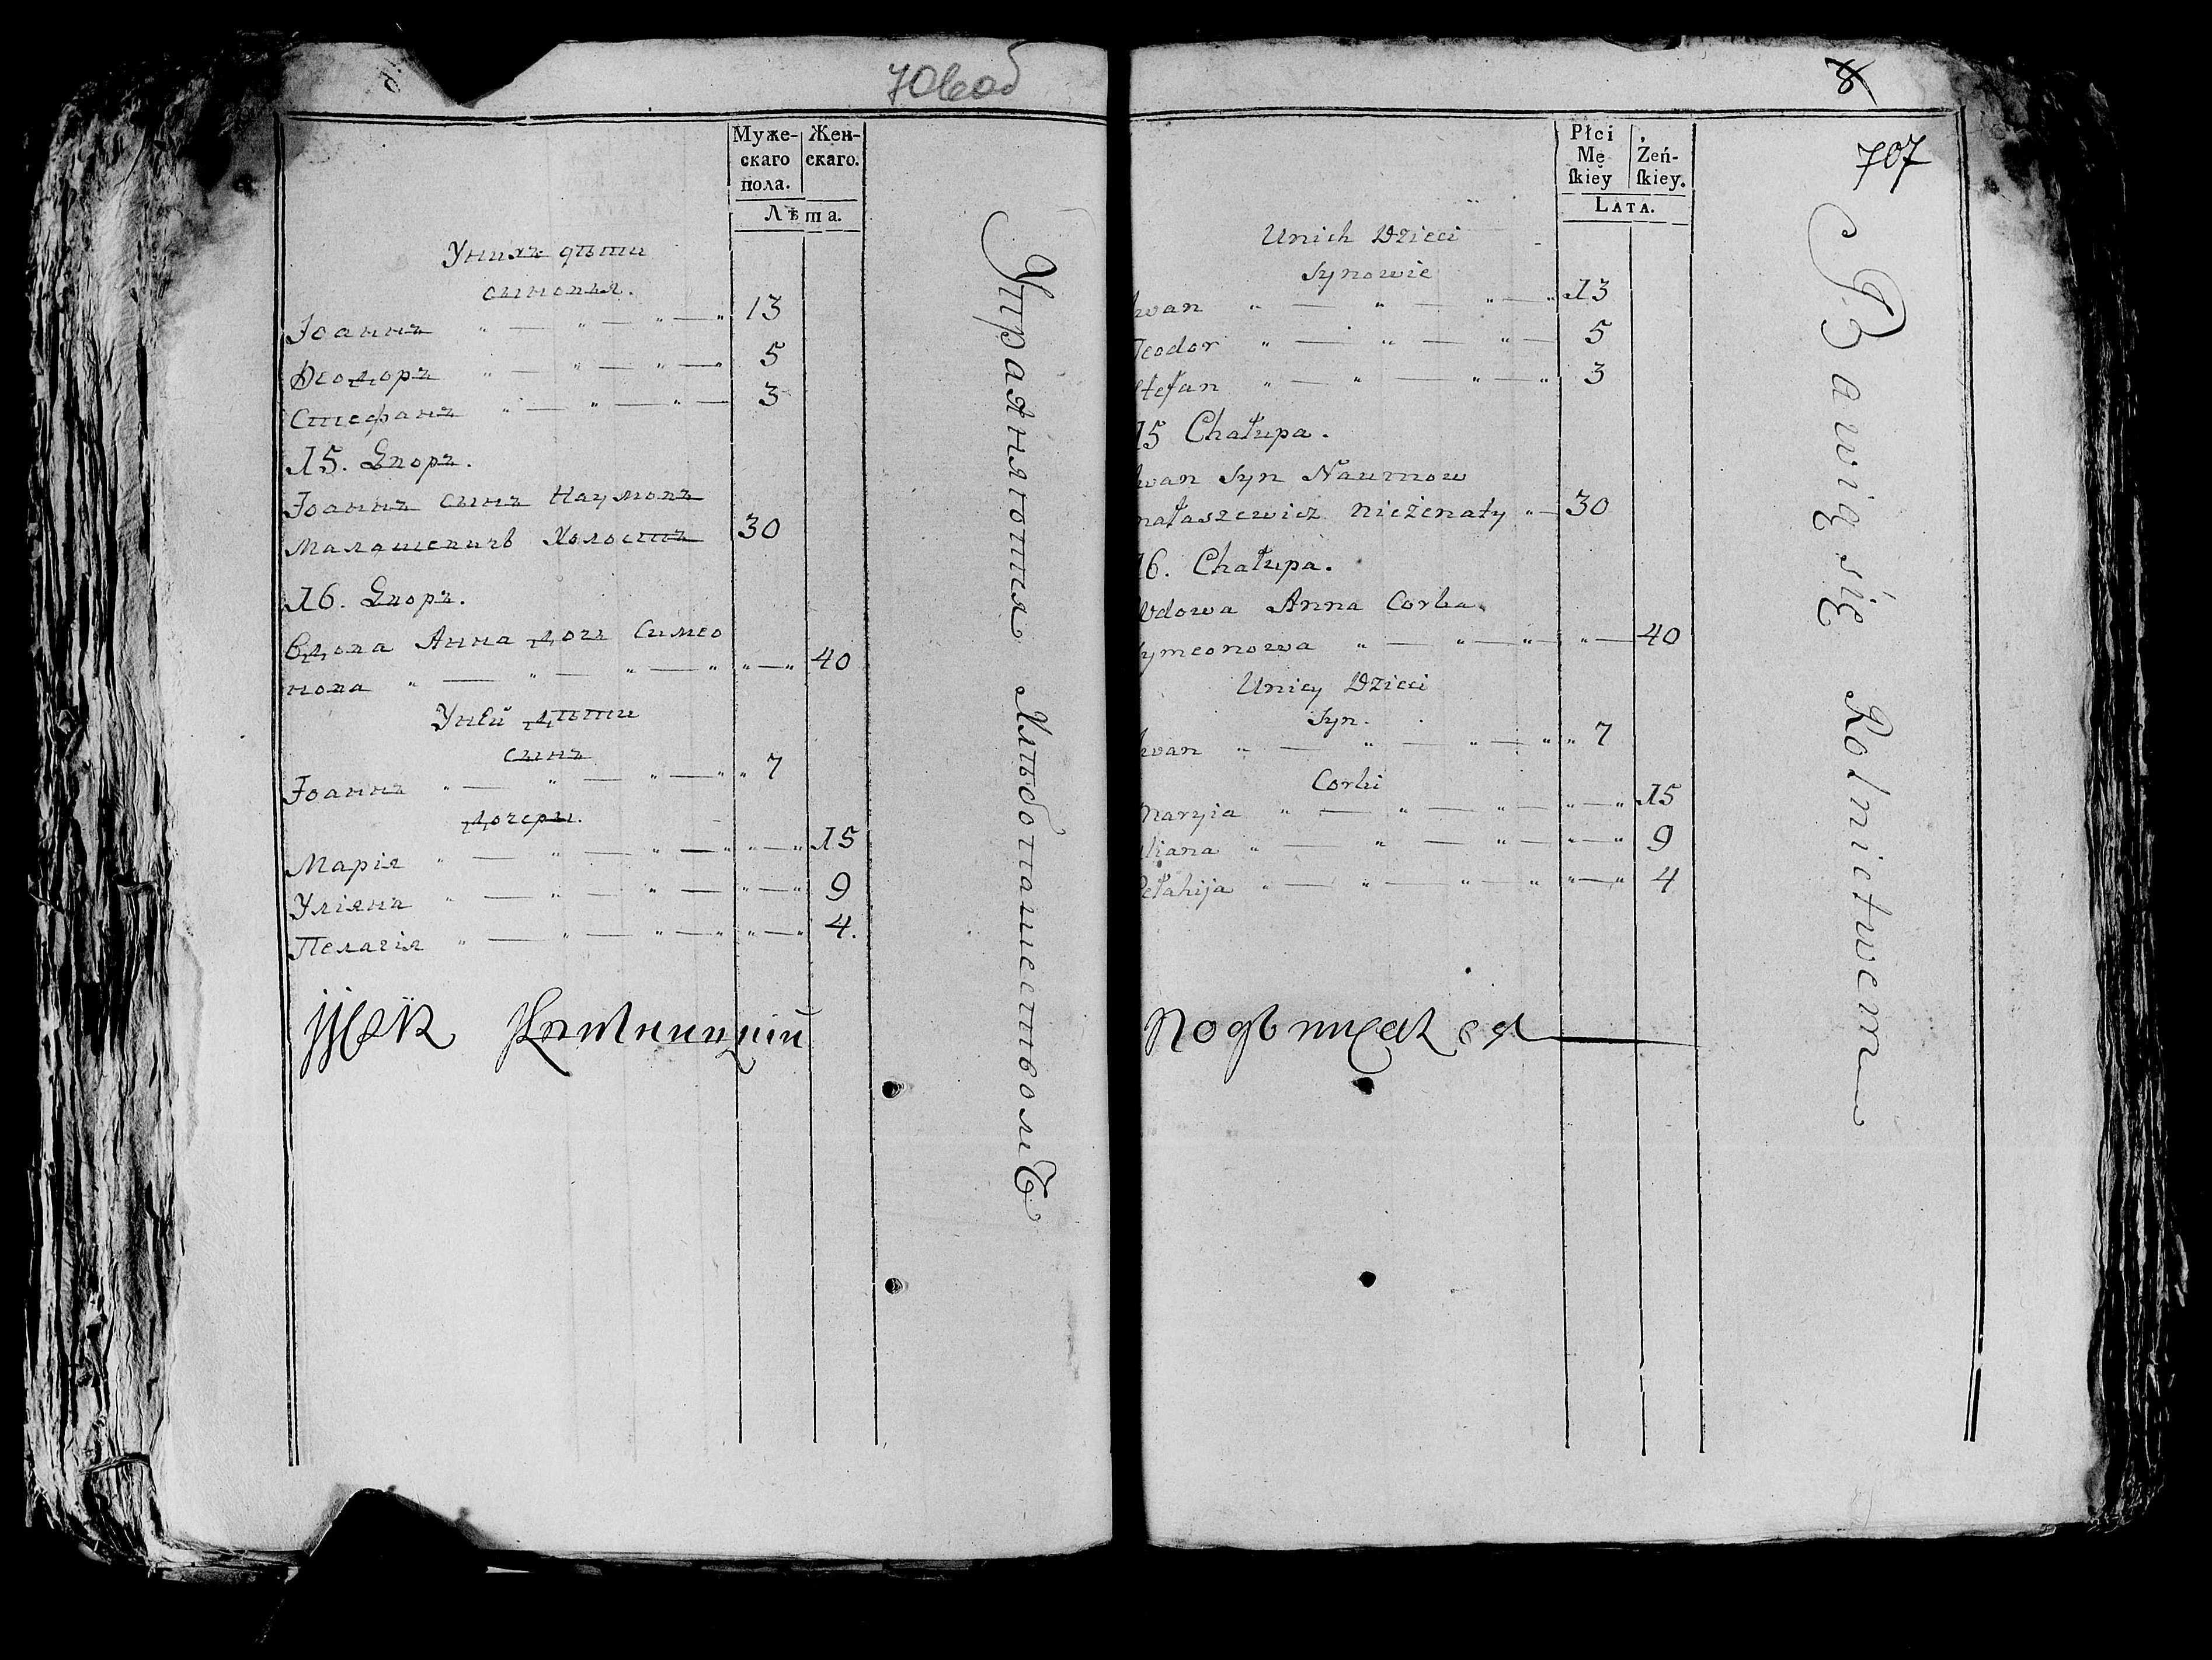 706об
Муже-
скаго
пола.
Жен-
скаго.
Лѣта.
Унихъ дѣти
сыновья.
Іоаннъ 13
Ѳеодоръ 5
Стефанъ 3
15. Дворъ.
Іоаннъ сынъ Наумовъ
Малашевичь Холостъ 30
16. Дворъ.
Вдова Анна дочь Симео
нова 40
Уней дѣти
сынъ
Іоаннъ 7
дочери.
Марія 15
Уліяна 9
Пелагія 4.
Упражняются Хлѣбопашествомъ
8
707
Płci
Mę
skiey
Żeń-
skiey.
LATA.
Unich Dzieci
Synowie
Iwan 13
Teodor 5
Stefan 3
15 Chałupa.
Iwan Syn Naumow
Małaszewicz Nieżenaty 30
16. Chałupa.
Wdowa Anna Corka
Symeonowa 40
Uniey Dzieci
Syn.
Iwan 7
Corki
Maryia 15
Uliana 9
Pełahija 4
подъписалъся
Bawią się Rolnictwem